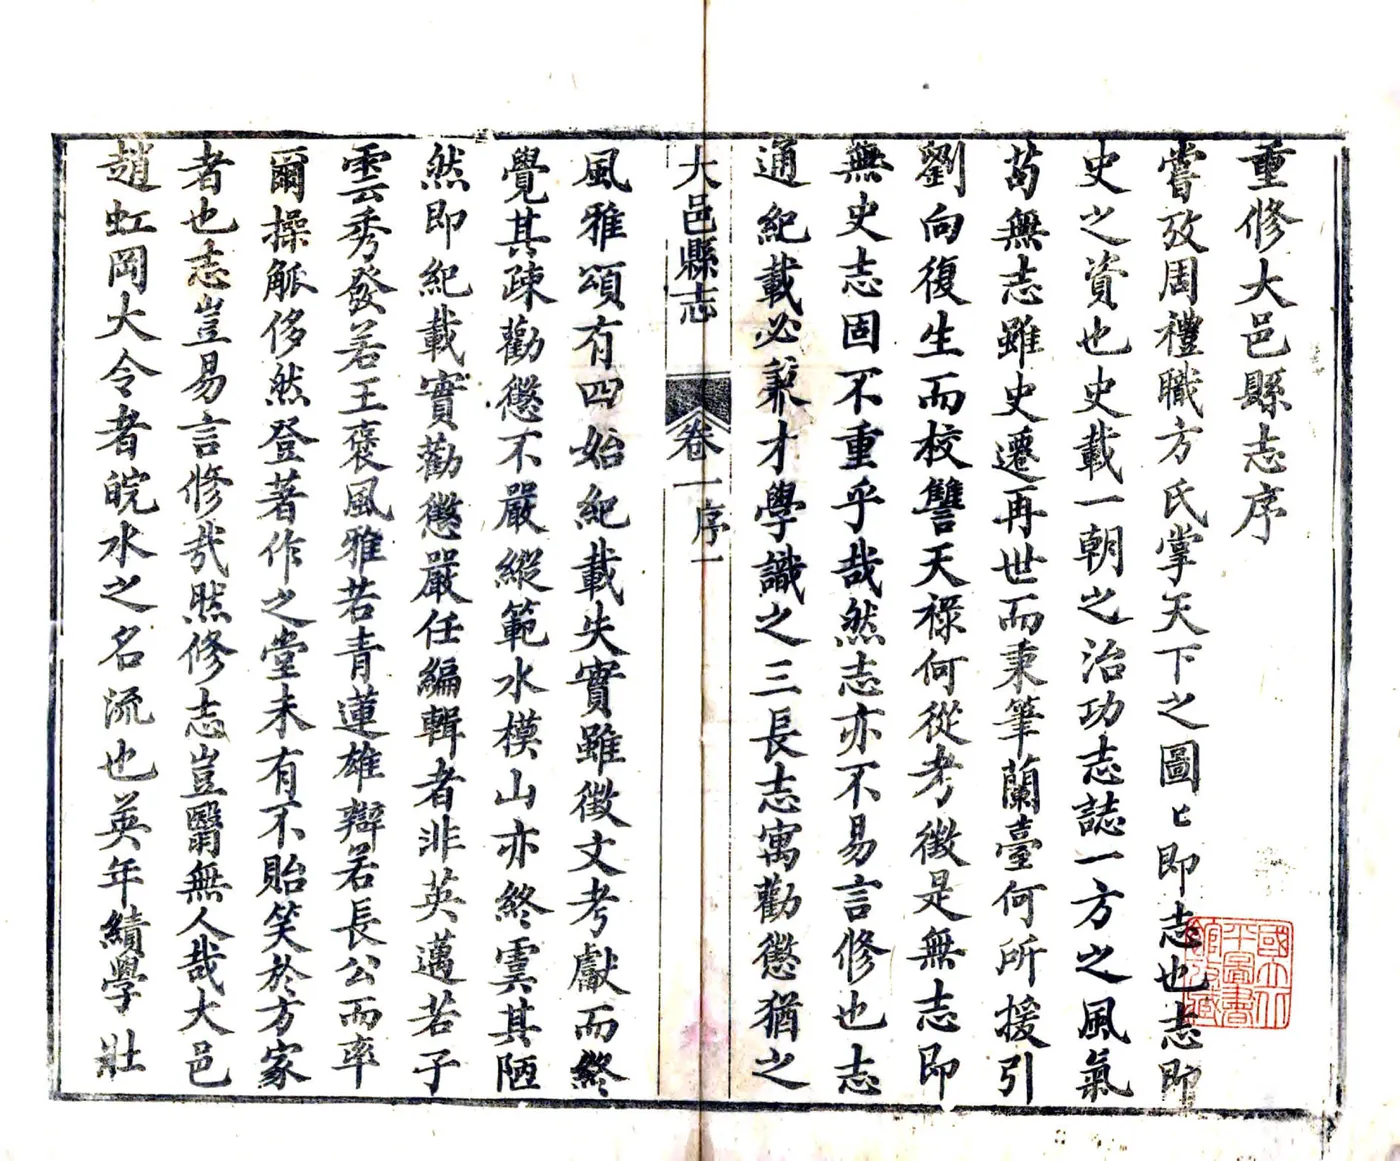 重修大邑縣志序
嘗攷周禮職方氏掌天下之圖〻即志也志即
史之資也史載一朝之治功志誌一方之風氣
苟無志雖史遷再世而秉筆蘭臺何所援引
劉向復生而校讐天祿何從考徵是無志即
無史志固不重乎哉然志亦不易言修也志
通紀載必兼才學識之三長志寓勸懲猶之
大邑縣志
卷一序
一
風雅頌有四始紀載失實雖徵文考獻而終
覺其疎勸懲不嚴縱範水模山亦終虞其陋
然即紀載實勸懲嚴任編輯者非英邁若子
雲秀發若王褒風雅若青蓮雄辯若長公而率
爾操觚侈然登著作之堂未有不貽笑於方家
者也志豈易言修哉然修志豈翳無人哉大邑
趙虹岡大令者皖水之名流也英年績學壯
國立北
平圖書
館收藏